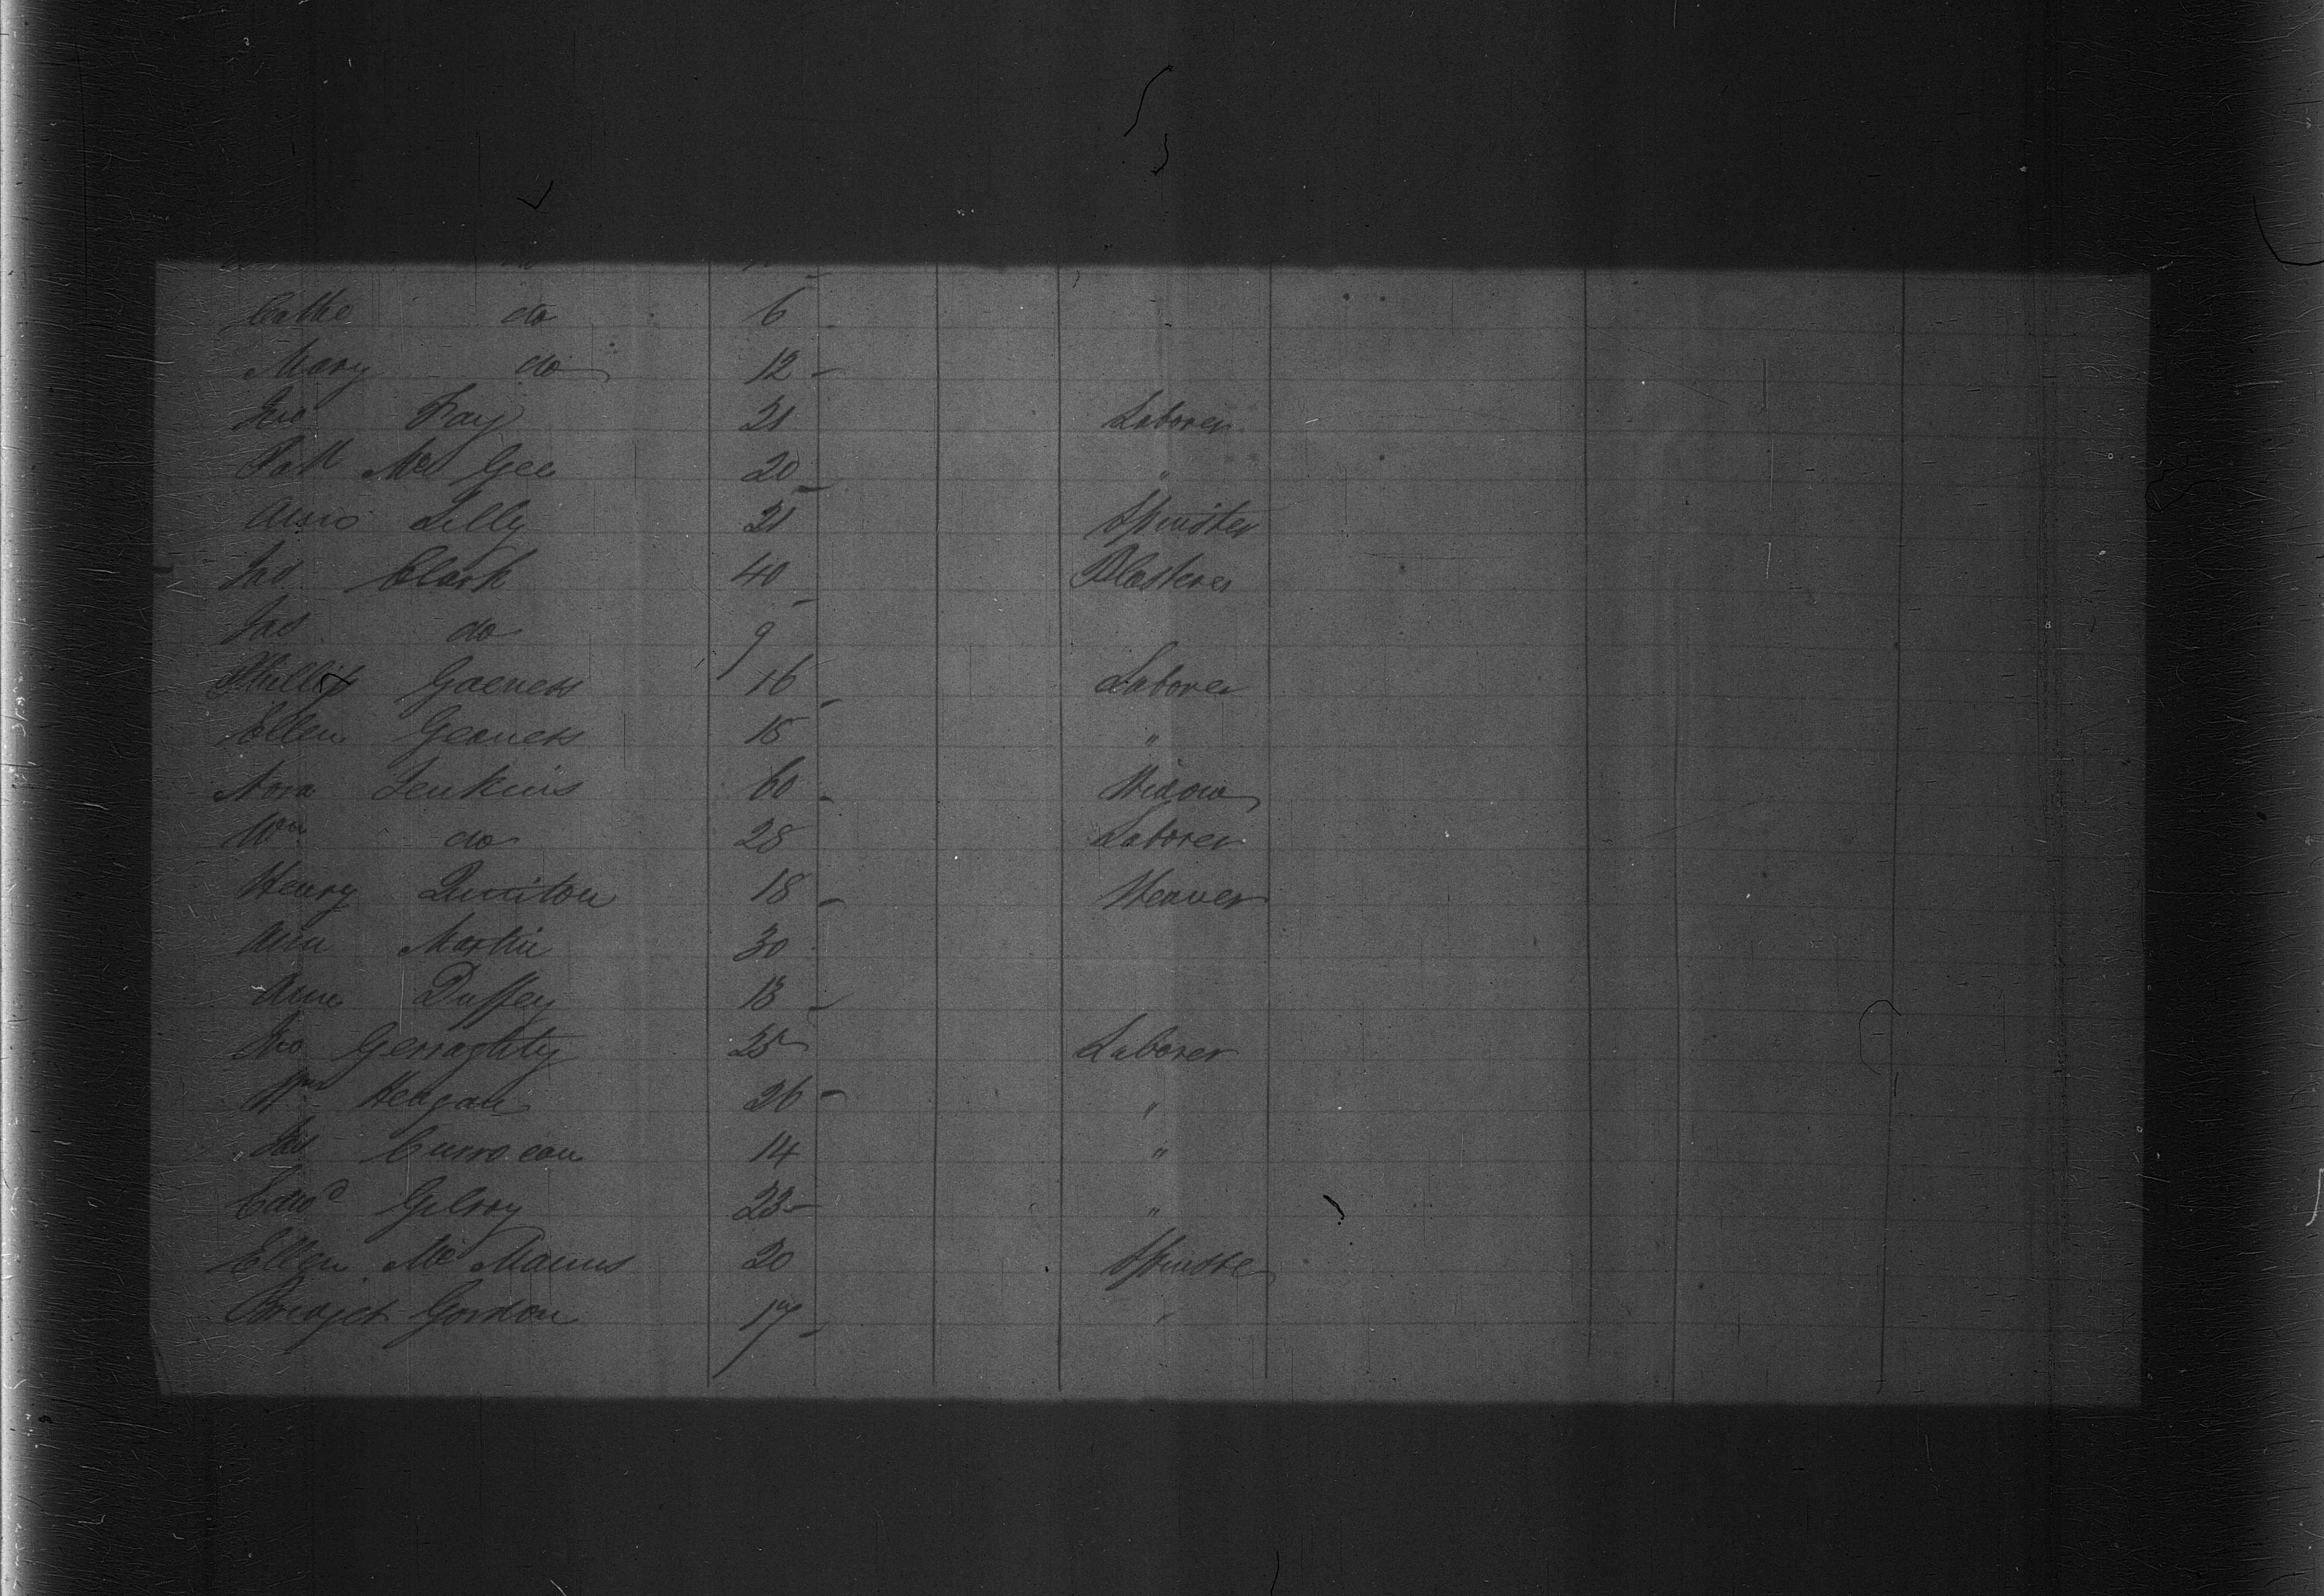 Cathe do 6
Mary do 12 -
Jno Fay 21 Laborer
Patt Mc Gee 20 - "
Ann Lilly 21 Spinster
Jas Clark 40 - Plasterer
Jas do 9
Phillip 16 - Laborer
Ellen 15 "
Nora Jenkins 60 - Widow
Wm do 28 Laborer
Henry Quinton 18 - Weaver
Ann Martin 30
Ann Duffey 18 -
Jno Gerraghty 25 Laborer
Wm Heagan 26 - "
Jas 14 "
Edwd Gilroy 23 - "
Ellen Mc Manus 20 Spinster
Bridget Gordon 17 - "